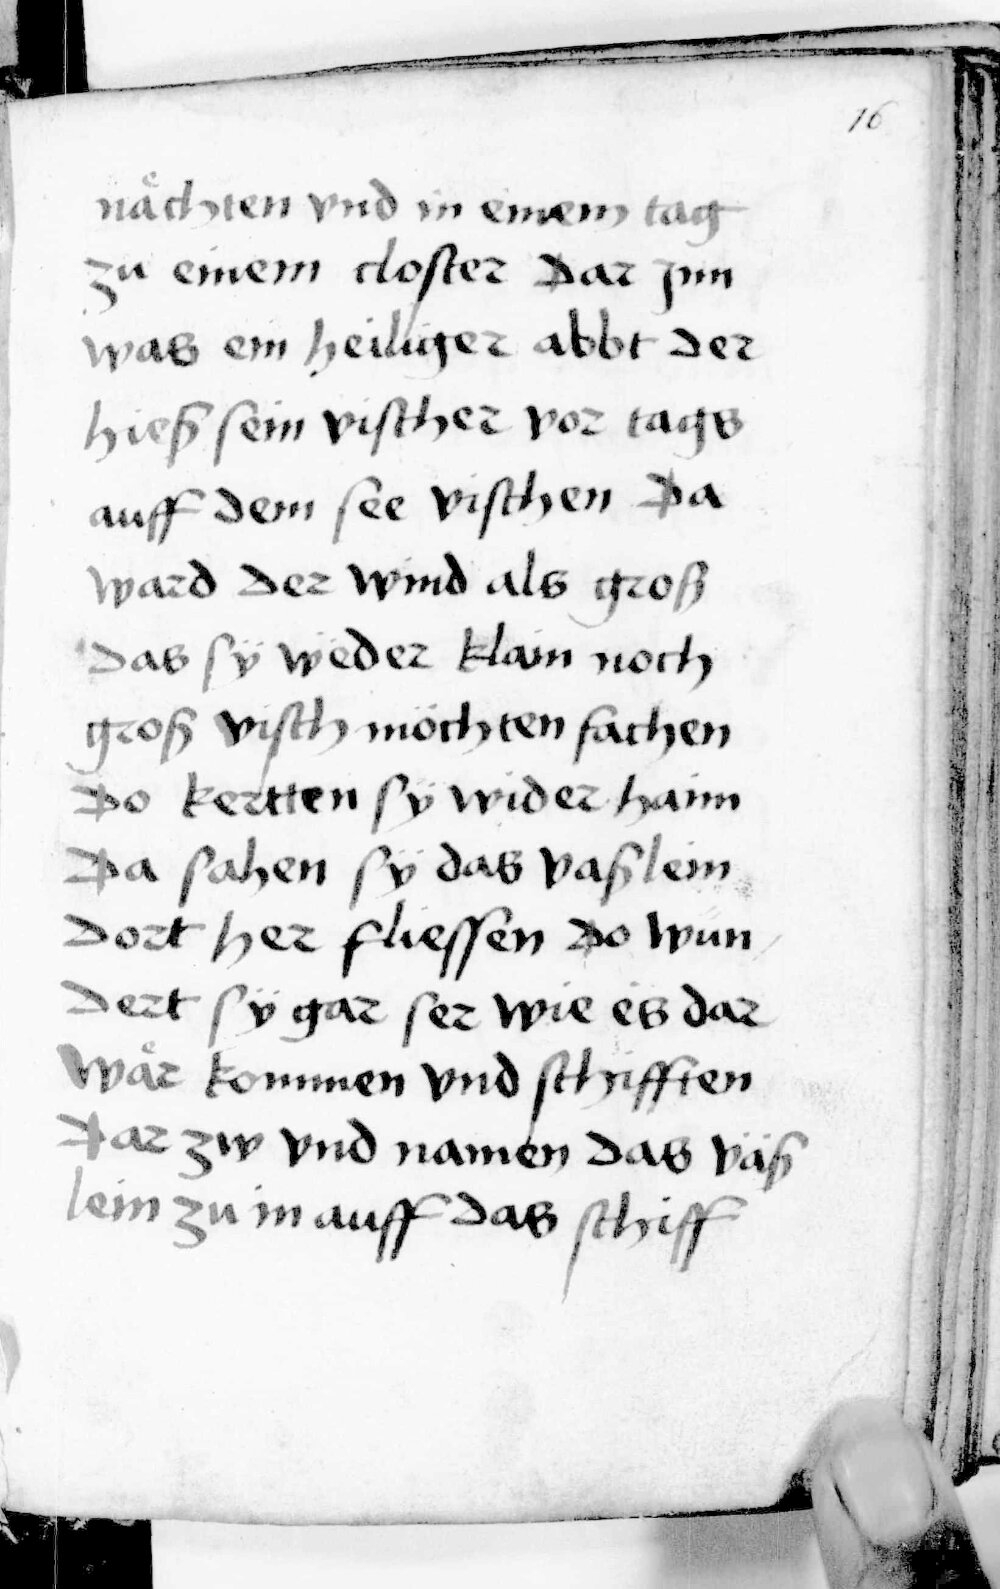 16
nächten vnd in einem tag
zu einem closter Dar jnn
was ein heiliger abbt der
hieß sein vischer vor tags
auff dem see vischen Da
ward der wind als groß
das sÿ weder klain noch
groß visch möchten fachen
Do kertten sÿ wider haim
Da sahen sÿ das vaßlein
dort her fliessen Do wun
dert sÿ gar ser wie es dar
wär kommen vnd schifften
Dar zw vnd namen das väß
lein zu in auff das schiff